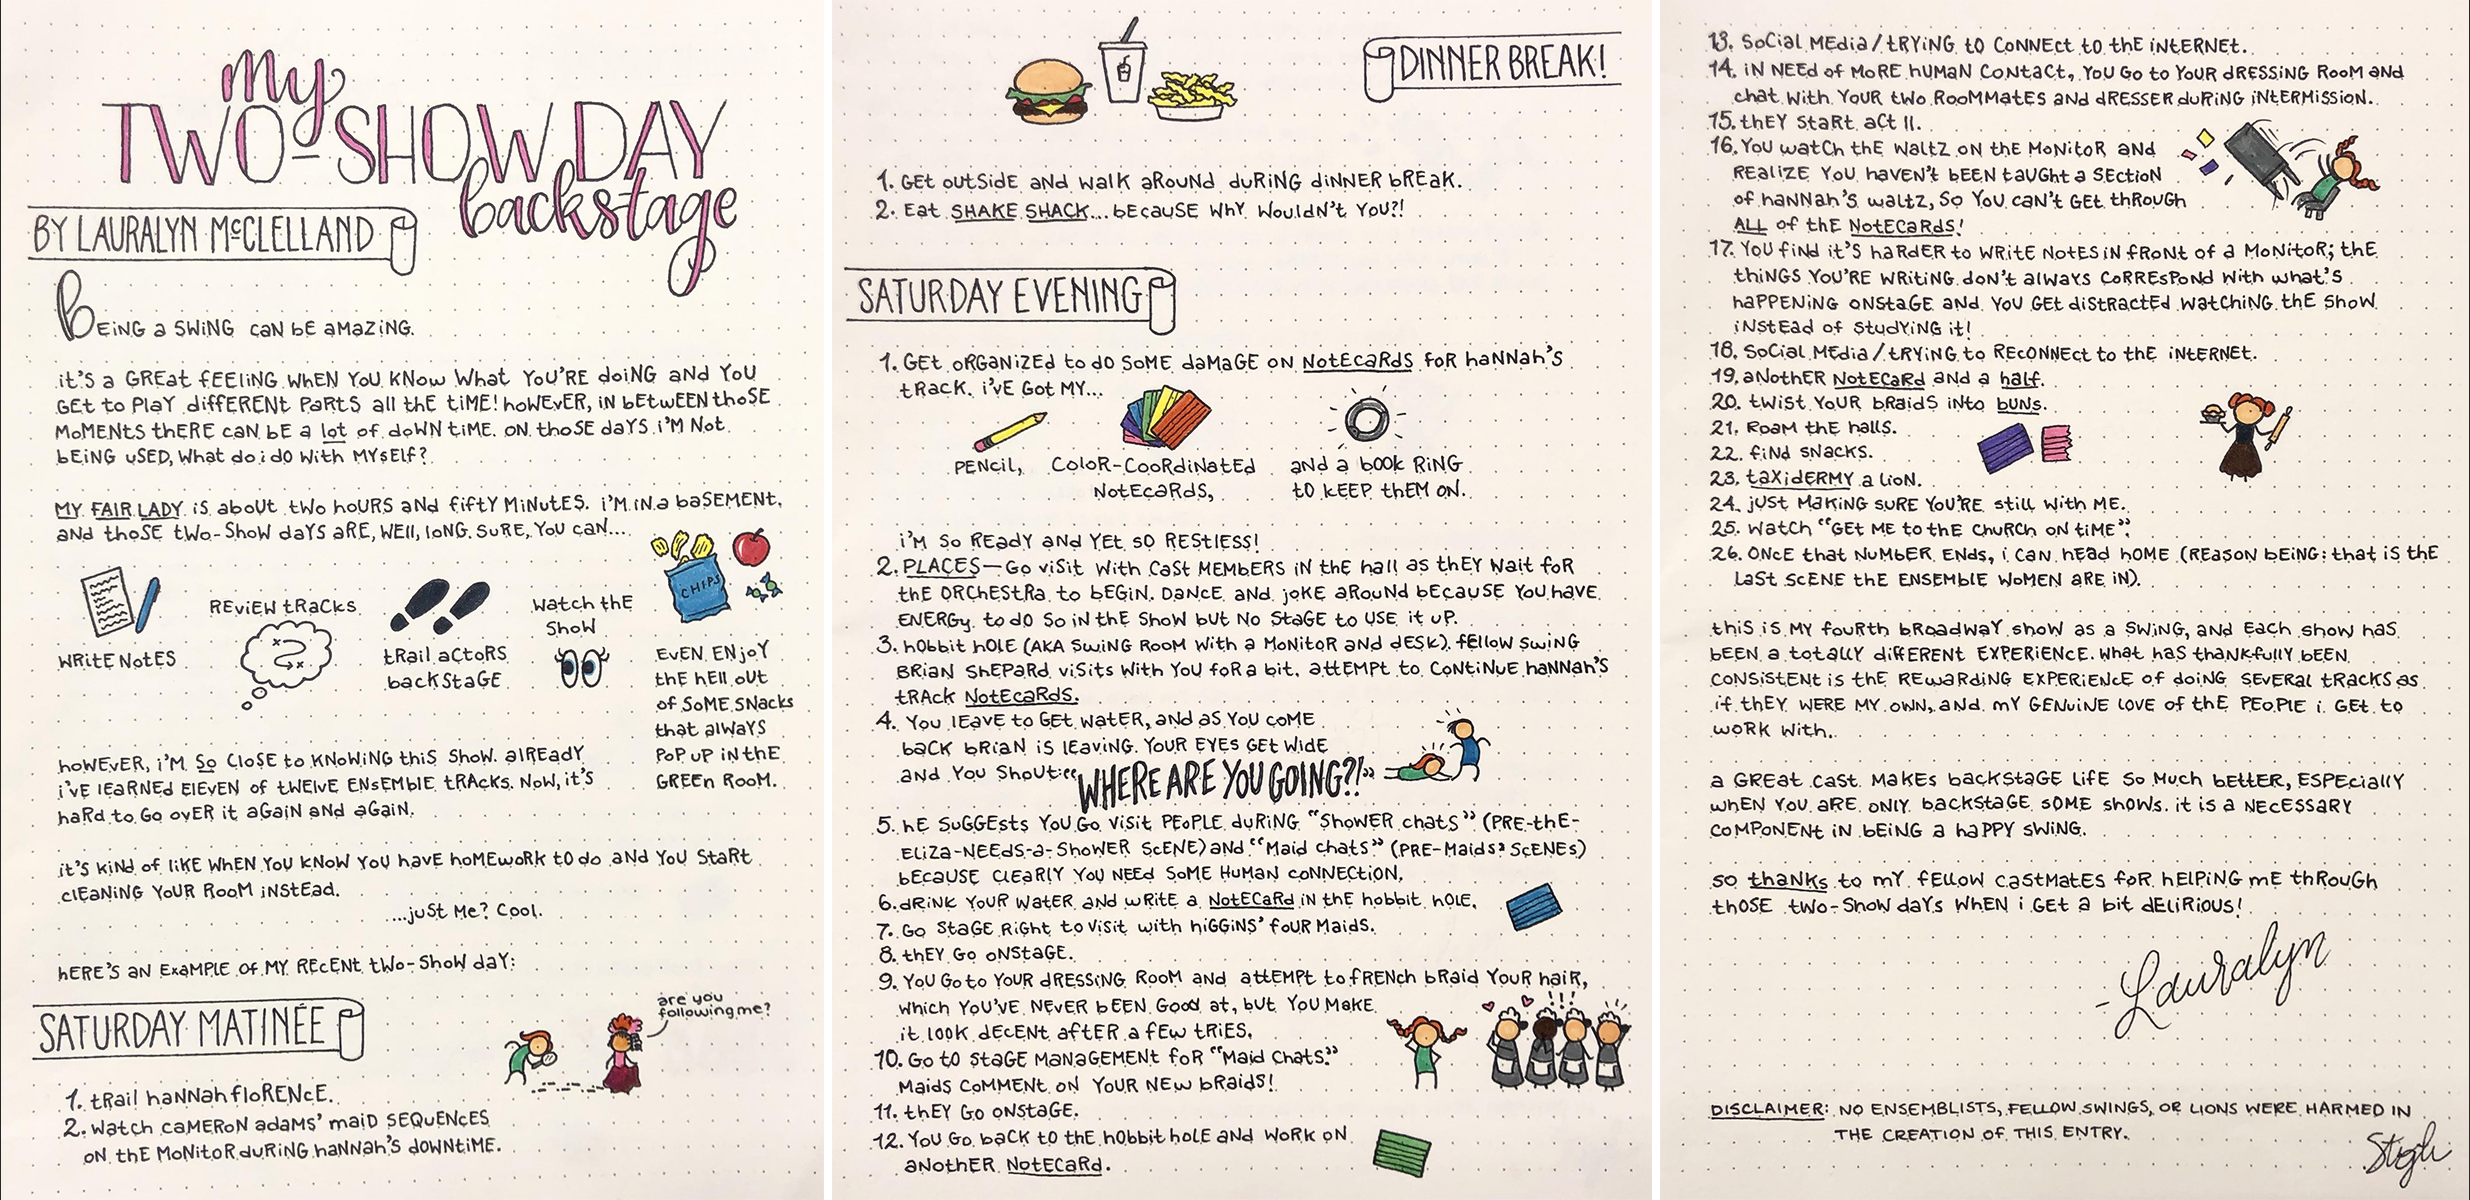 My
TWO-SHOW DAY
backstage
BY LAURALYN McCLELLAND
Being a swing can be amazing.
it's a great feeling when you know what you're doing and you
get to play different parts all the time! however, in between those
moments there can be a lot of down time. on those days i'm not
being used, what do i do with myself?
My Fair Lady is about two hours and fifty minutes. i'm in a basement,
and those two-show days are, well, long. sure, you can...
write notes
review tracks
trail actors
backstage
watch the
show
CHIPS
even enjoy
the hell out
of some snacks
that always
pop up in the
green room.
however, i'm so close to knowing this show. already
i've learned eleven of twelve ensemble tracks. now, it's
hard to go over it again and again.
it's kind of like when you know you have homework to do and you start
cleaning your room instead.
...just me? cool.
here's an example of my recent two-show day:
SATURDAY MATINÉE
are you
following me?
1. trail hannah florence.
2. watch cameron adams' maid sequences
on the monitor during hannah's downtime.
DINNER BREAK!
1. Get outside and walk around during dinner break.
2. Eat SHAKE SHACK... because why wouldn't you?!
SATURDAY EVENING
1. Get organized to do some damage on notecards for hannah's
track. i've got my...
pencil,
color-coordinated
notecards,
and a book ring
to keep them on.
i'm so ready and yet so restless!
2. PLACES—Go visit with cast members in the hall as they wait for
the orchestra to begin. Dance and joke around because you have
energy to do so in the show but no stage to use it up.
3. hobbit hole (AKA swing room with a monitor and desk). fellow swing
Brian Shepard visits with you for a bit. attempt to continue hannah's
track notecards.
4. You leave to get water, and as you come
back brian is leaving. Your eyes get wide
and you shout: "WHERE ARE YOU GOING?!"
5. he suggests you go visit people during "shower chats" (pre-the-
Eliza-needs-a-shower scene) and "Maid chats" (pre-Maids' scenes)
because clearly you need some human connection.
6. drink your water and write a notecard in the hobbit hole.
7. Go stage right to visit with higgins' four maids.
8. they go onstage.
9. You go to your dressing room and attempt to french braid your hair,
which you've never been good at, but you make
it look decent after a few tries.
10. Go to stage management for "Maid chats."
Maids comment on your new braids!
11. they go onstage.
12. You go back to the hobbit hole and work on
another notecard.
13. Social media/trying to connect to the internet.
14. in need of more human contact, you go to your dressing room and
chat with your two roommates and dresser during intermission.
15. they start act II.
16. You watch the waltz on the monitor and
realize you haven't been taught a section
of hannah's waltz, so you can't get through
ALL of the notecards!
17. You find it's harder to write notes in front of a monitor; the
things you're writing don't always correspond with what's
happening onstage and you get distracted watching the show
instead of studying it!
18. Social media/trying to reconnect to the internet.
19. another notecard and a half.
20. twist your braids into buns.
21. Roam the halls.
22. find snacks.
23. taxidermy a lion.
24. just making sure you're still with me.
25. watch "Get me to the church on time".
26. Once that number ends, i can head home (reason being: that is the
last scene the ensemble women are in).
this is my fourth broadway show as a swing, and each show has
been a totally different experience. what has thankfully been
consistent is the rewarding experience of doing several tracks as
if they were my own, and my genuine love of the people i get to
work with.
a great cast makes backstage life so much better, especially
when you are only backstage some shows. it is a necessary
component in being a happy swing.
so thanks to my fellow castmates for helping me through
those two-show days when i get a bit delirious!
-Lauralyn
DISCLAIMER: NO ENSEMBLISTS, FELLOW SWINGS, OR LIONS WERE HARMED IN
THE CREATION OF THIS ENTRY.